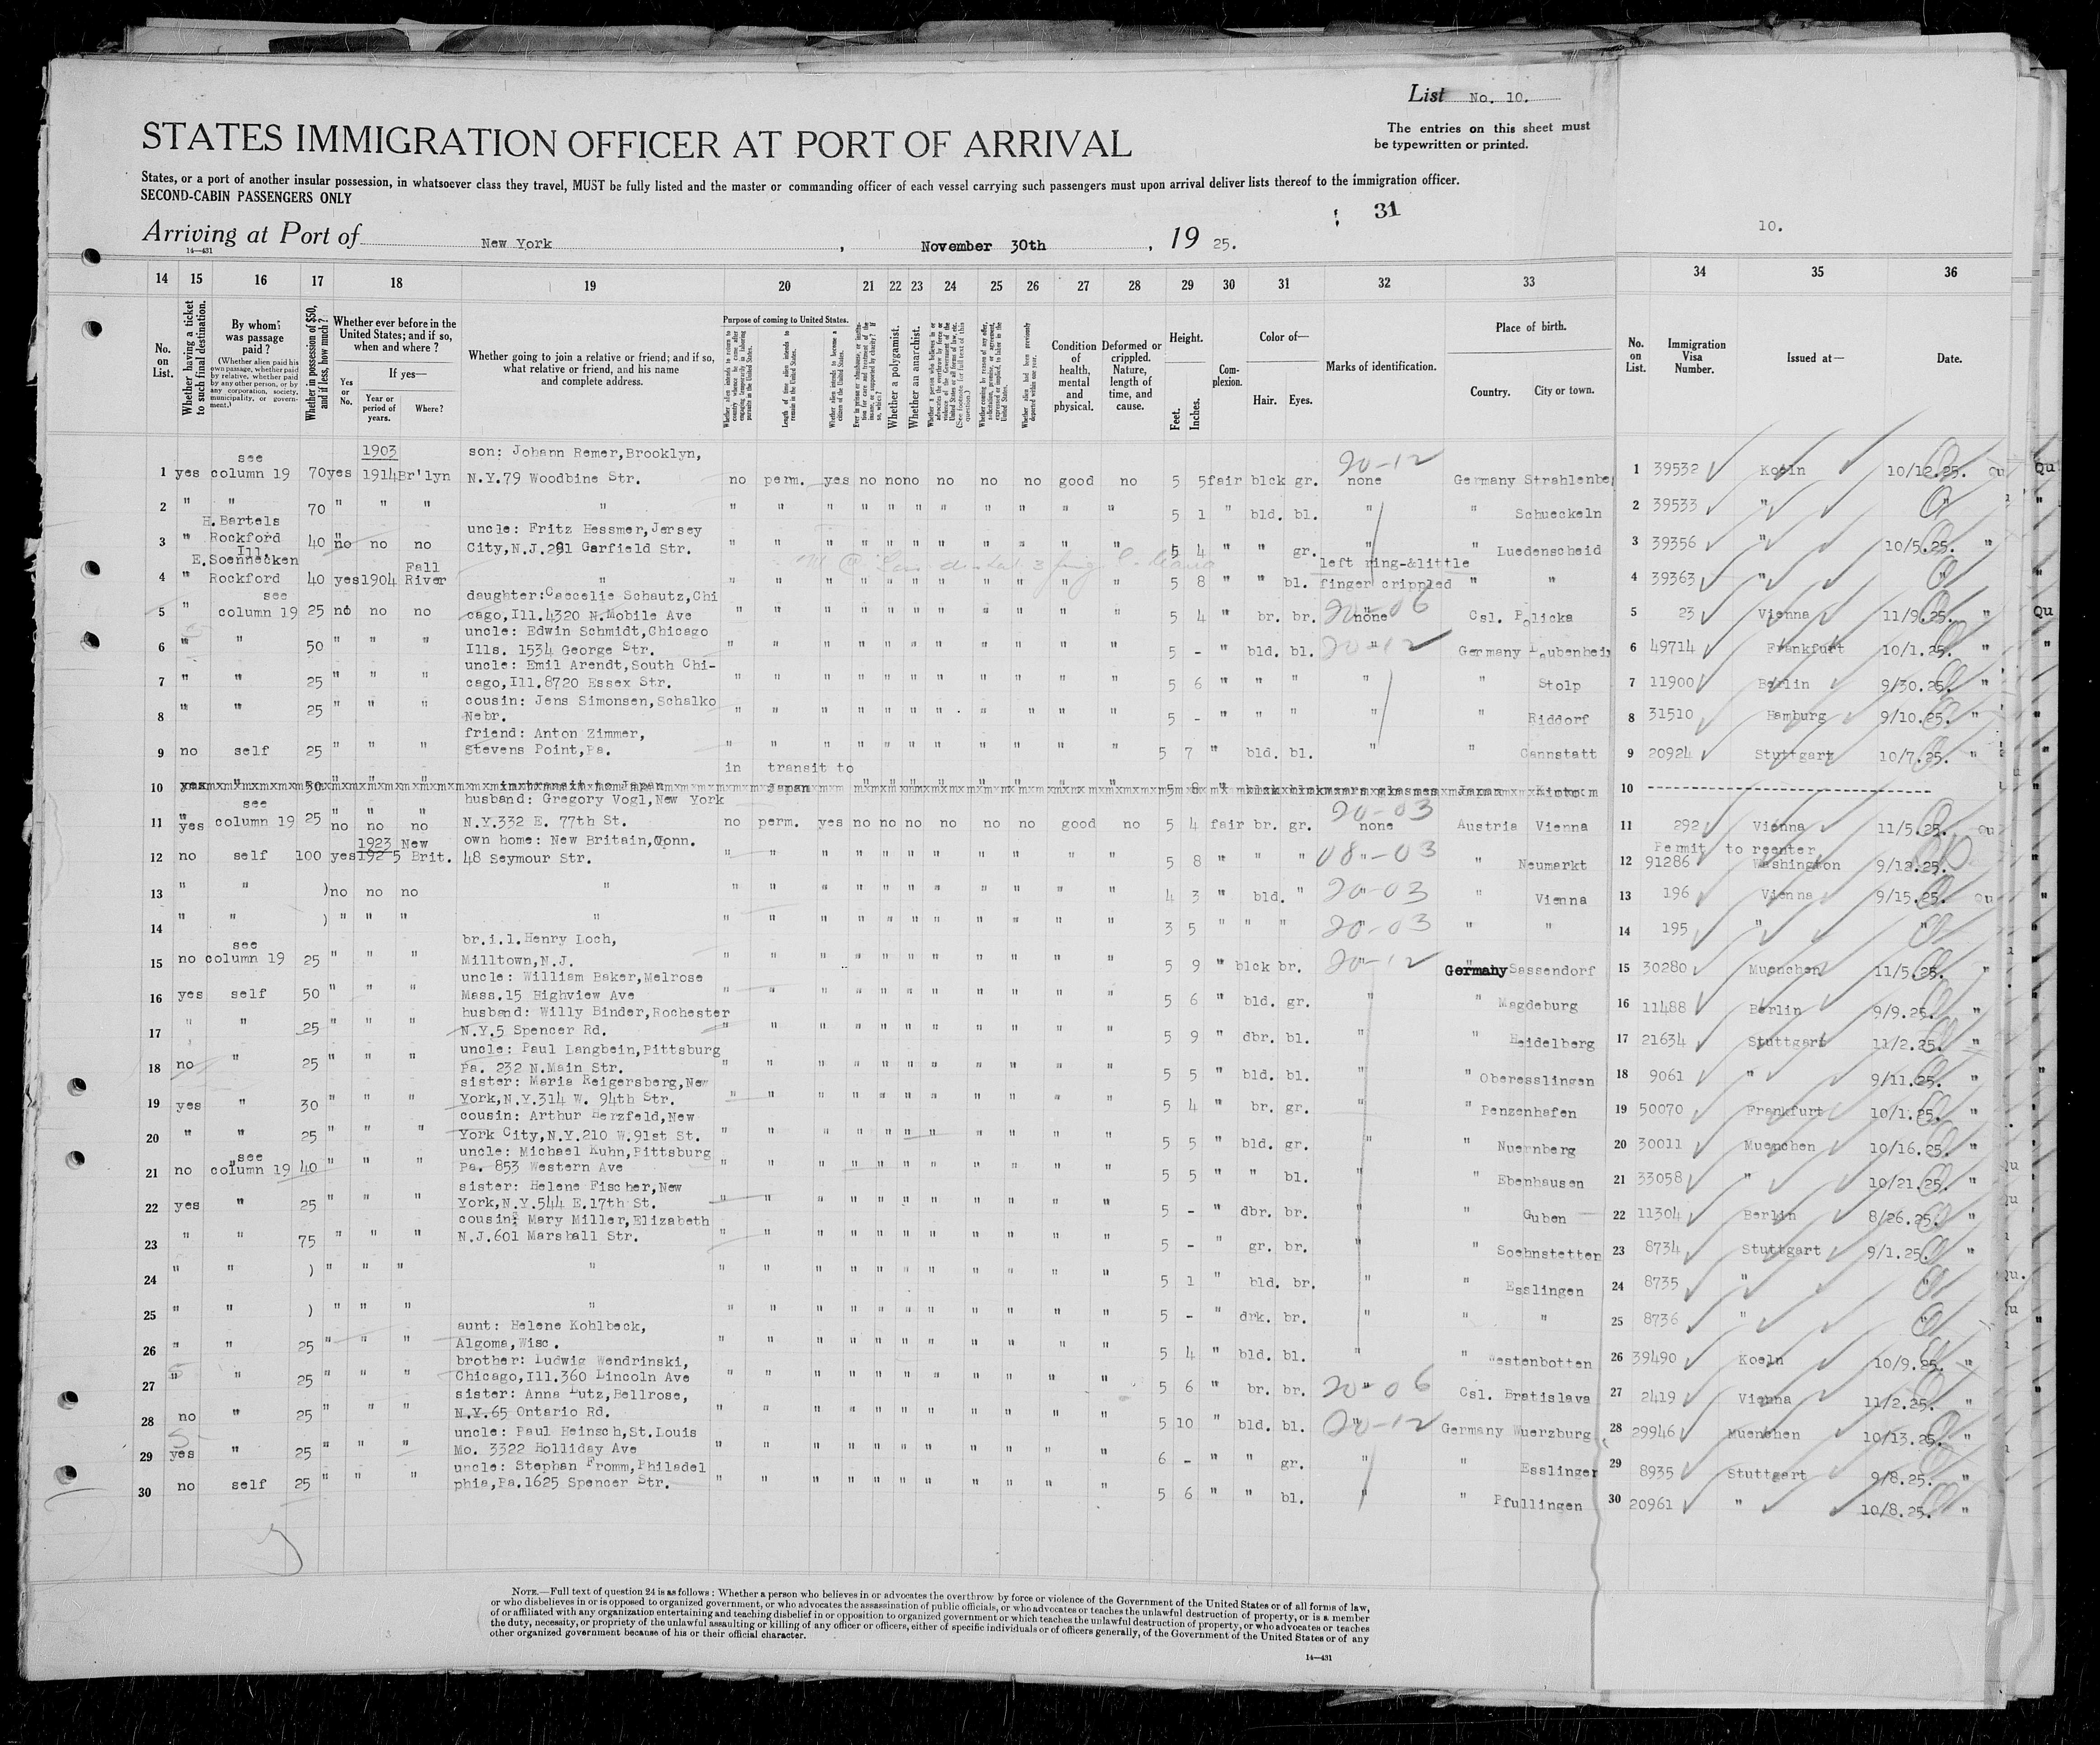 List No. 10.
The entries on this sheet must
be typewritten or printed.
STATES IMMIGRATION OFFICER AT PORT OF ARRIVAL
States, or a port of another insular possession, in whatsoever class they travel, MUST be fully listed and the master or commanding officer of each vessel carrying such passengers must upon arrival deliver lists thereof to the immigration officer.
SECOND-CABIN PASSENGERS ONLY
31
10.
Arriving at Port of New York, November 30th, 19 25.
14—431
14 15 16 17 18 19 20 21 22 23 24 25 26 27 28 29 30 31 32 33 34 35 36
No. on List.
Whether having a ticket to such final destination.
By whom was passage paid?
(Whether alien paid his own passage, whether paid by relative, whether paid by any other person, or by any corporation, society, municipality, or government.)
Whether in possession of $50, and if less, how much?
Whether ever before in the United States; and if so, when and where?
Yes or No.
If yes—
Year or period of years.
Where?
Whether going to join a relative or friend; and if so, what relative or friend, and his name and complete address.
Purpose of coming to United States.
Length of time alien intends to remain in the United States.
Whether alien intends to become a citizen of the United States.
Whether a polygamist.
Whether an anarchist.
Condition of health, mental and physical.
Deformed or crippled. Nature, length of time, and cause.
Height.
Feet. Inches.
Complexion.
Color of—
Hair. Eyes.
Marks of identification.
Place of birth.
Country. City or town.
No. on List.
Immigration Visa Number.
Issued at—
Date.
1 yes see column 19 70 yes 1903 1914 Br'lyn son: Johann Remer, Brooklyn, N.Y. 79 Woodbine Str. no perm. yes no no no no no no good no 5 5 fair blck gr. 20-12 none Germany Strahlenbe 1 39532 Koeln 10/12.25. Qu
2 " " 70 " " " " " " " " " " " " " " " " 5 1 " bld. bl. " " Schueckeln 2 39533 " "
3 " H. Bartels Rockford Ill. 40 no no no uncle: Fritz Hessmer, Jersey City, N.J. 291 Garfield Str. " " " " " " " " " " " 5 4 " " gr. " " Luedenscheid 3 39356 " 10/5.25. "
4 " E. Soennecken Rockford 40 yes 1904 Fall River " " " " " " " " " " " " 5 8 " " bl. left ring-&little finger crippled " " 4 39363 " "
5 " see column 19 25 no no no daughter: Caecelie Schautz, Chicago, Ill. 4320 N. Mobile Ave " " " " " " " " " " " 5 4 " br. br. 20-06 none Csl. Policka 5 23 Vienna 11/9.25. " Qu
6 " " 50 " " " uncle: Edwin Schmidt, Chicago Ills. 1534 George Str. " " " " " " " " " " " 5 - " bld. bl. 20-12 " Germany Laubenheim 6 49714 Frankfurt 10/1.25. "
7 " " 25 " " " uncle: Emil Arendt, South Chicago, Ill. 8720 Essex Str. " " " " " " " " " " " 5 6 " " " " " Stolp 7 11900 Berlin 9/30.25. "
8 " " 25 " " " cousin: Jens Simonsen, Schalko Nebr. " " " " " " " " " " " 5 - " " " " " Riddorf 8 31510 Hamburg 9/10.25. "
9 no self 25 " " " friend: Anton Zimmer, Stevens Point, Pa. " " " " " " " " " " " 5 7 " bld. bl. " " Cannstatt 9 20924 Stuttgart 10/7.25. "
10 yes " 50 " " " in transit to Japan in transit to Japan " " " " " " " " 5 8 " Japan 10
11 yes see column 19 25 no no no husband: Gregory Vogl, New York N.Y. 332 E. 77th St. no perm. yes no no no no no no good no 5 4 fair br. gr. 20-03 none Austria Vienna 11 292 Vienna 11/5.25. Qu
12 no self 100 yes 1923 1925 New Brit. own home: New Britain, Conn. 48 Seymour Str. " " " " " " " " " " " 5 8 " " " 08-03 " " Neumarkt 12 91286 Permit to reenter Washington 9/12.25.
13 " " ) no no no " " " " " " " " " " " " 4 3 " bld. " 20-03 " " Vienna 13 196 Vienna 9/15.25. Qu
14 " " ) " " " " " " " " " " " " " " " 3 5 " " " 20-03 " " " 14 195 " "
15 no see column 19 25 " " " br.i.l. Henry Loch, Milltown, N.J. " " " " " " " " " " " 5 9 " blck br. 20-12 " Germany Sassendorf 15 30280 Muenchen 11/5.25. "
16 yes self 50 " " " uncle: William Baker, Melrose Mass. 15 Highview Ave " " " " " " " " " " " 5 6 " bld. gr. " " Magdeburg 16 11488 Berlin 9/9.25. "
17 " " 25 " " " husband: Willy Binder, Rochester N.Y. 5 Spencer Rd. " " " " " " " " " " " 5 9 " dbr. bl. " " Heidelberg 17 21634 Stuttgart 11/2.25. "
18 no " 25 " " " uncle: Paul Langbein, Pittsburg Pa. 232 N. Main Str. " " " " " " " " " " " 5 5 " bld. bl. " " Oberesslingen 18 9061 " 9/11.25. "
19 yes " 30 " " " sister: Maria Reigersberg, New York, N.Y. 314 W. 94th Str. " " " " " " " " " " " 5 4 " br. gr. " " Penzenhafen 19 50070 Frankfurt 10/1.25. "
20 " " 25 " " " cousin: Arthur Herzfeld, New York City, N.Y. 210 W. 91st St. " " " " " " " " " " " 5 5 " bld. gr. " " Nuernberg 20 30011 Muenchen 10/16.25. "
21 no see column 19 40 " " " uncle: Michael Kuhn, Pittsburg Pa. 853 Western Ave " " " " " " " " " " " 5 5 " " bl. " " Ebenhausen 21 33058 " 10/21.25. "
22 yes " 25 " " " sister: Helene Fischer, New York, N.Y. 544 E. 17th St. " " " " " " " " " " " 5 - " dbr. br. " " Guben 22 11304 Berlin 8/26.25. "
23 " " 75 " " " cousin: Mary Miller, Elizabeth N.J. 601 Marshall Str. " " " " " " " " " " " 5 - " gr. br. " " Soehnstetten 23 8734 Stuttgart 9/1.25. "
24 " " ) " " " " " " " " " " " " " " " 5 1 " bld. br. " " Esslingen 24 8735 " "
25 " " ) " " " " " " " " " " " " " " " 5 - " drk. br. " " " 25 8736 " "
26 " " 25 " " " aunt: Helene Kohlbeck, Algoma, Wisc. " " " " " " " " " " " 5 4 " bld. bl. " " Westenbotten 26 39490 Koeln 10/9.25. "
27 " " 25 " " " brother: Ludwig Wendrinski, Chicago, Ill. 360 Lincoln Ave " " " " " " " " " " " 5 6 " br. br. 20-06 " Csl. Bratislava 27 2419 Vienna 11/2.25. "
28 no " 25 " " " sister: Anna Lutz, Bellrose, N.Y. 65 Ontario Rd. " " " " " " " " " " " 5 10 " bld. bl. 20-12 " Germany Wuerzburg 28 29946 Muenchen 10/13.25. "
29 yes " 25 " " " uncle: Paul Heinsch, St. Louis Mo. 3322 Holliday Ave " " " " " " " " " " " 6 - " " gr. " " Esslingen 29 8935 Stuttgart 9/8.25. "
30 no self 25 " " " uncle: Stephan Fromm, Philadelphia, Pa. 1625 Spencer Str. " " " " " " " " " " " 5 6 " " bl. " " Pfullingen 30 20961 " 10/8.25. "
NOTE.—Full text of question 24 is as follows: Whether a person who believes in or advocates the overthrow by force or violence of the Government of the United States or of all forms of law,
or who disbelieves in or is opposed to organized government, or who advocates the assassination of public officials, or who advocates or teaches the unlawful destruction of property, or is a member
of or affiliated with any organization entertaining and teaching disbelief in or opposition to organized government or which teaches the unlawful destruction of property, or who advocates or teaches
the duty, necessity, or propriety of the unlawful assaulting or killing of any officer or officers, either of specific individuals or of officers generally, of the Government of the United States or of any
other organized government because of his or their official character.
14—431